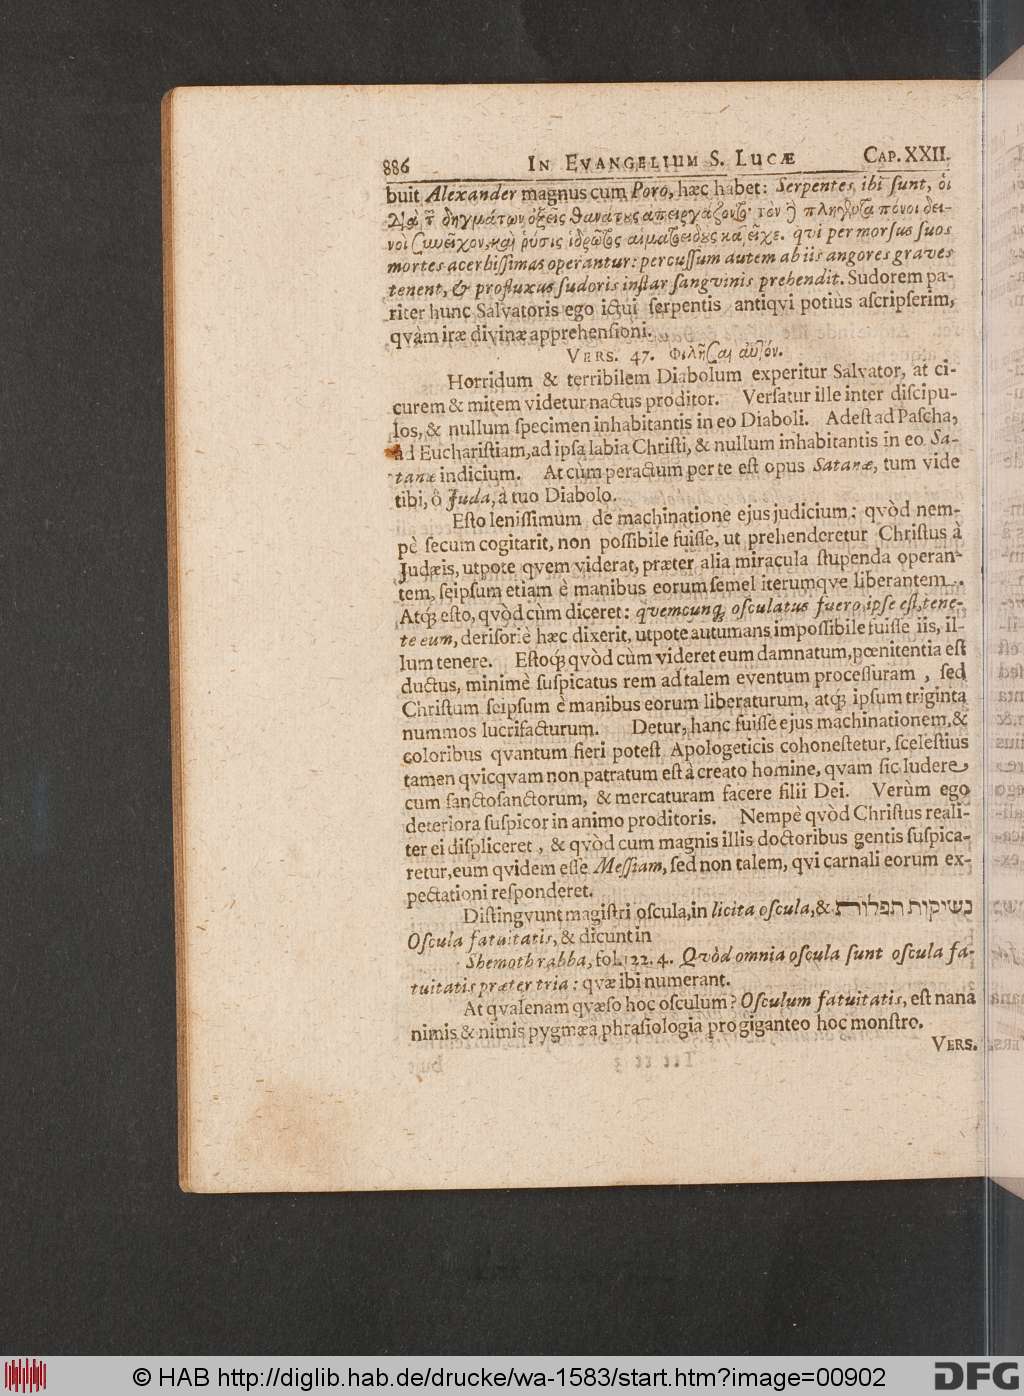 886 IN EVANGELIUM S. LUCÆ CAP. XXII.
buit Alexander magnus cum Poro, hæc habet: Serpentes ibi sunt, ὁι
δηγμάτων ὀξεῖς θανάτους ἀπειργάζοντο· τὸν πόνοι δει-
νοὶ συνεῖχον, καὶ ῥύσις ἱδρῶτος αἱματοειδοὺς κα εἶχε. qvi per morsus suos
mortes acerbissimas operantur: percussum autem ab iis angores graves
tenent, & profluxus sudoris instar sangvinis prehendit. Sudorem pa-
riter hunc Salvatoris ego ictui serpentis antiqvi potius ascripserim,
qvàm iræ divinæ apprehensioni.
VERS. 47. Φιλῆσαι αὐτόν.
Horridum & terribilem Diabolum experitur Salvator, at ci-
curem & mitem videtur nactus proditor. Versatur ille inter discipu-
los, & nullum specimen inhabitantis in eo Diaboli. Adest ad Pascha,
ad Eucharistiam, ad ipsa labia Christi, & nullum inhabitantis in eo Sa-
tanæ indicium. At cùm peractum per te est opus Satanæ, tum vide
tibi, ô Juda, à tuo Diabolo.
Esto lenissimum de machinatione ejus judicium: qvòd nem-
pè secum cogitarit, non possibile fuisse, ut prehenderetur Christus à
Judæis, utpote qvem viderat, præter alia miracula stupenda operan-
tem, seipsum etiam è manibus eorum semel iterumqve liberantem.
Atq; esto, qvòd cùm diceret: qvemcunq; osculatus fuero, ipse est, tene-
te eum, derisoriè hæc dixerit, utpote autumans impossibile fuisse iis, il-
lum tenere. Estoq; qvòd cùm videret eum damnatum, pœnitentia est
ductus, minimè suspicatus rem ad talem eventum processuram, sed
Christum seipsum è manibus eorum liberaturum, atq; ipsum triginta
nummos lucrifacturum. Detur, hanc fuisse ejus machinationem, &
coloribus qvantum fieri potest Apologeticis cohonestetur, scelestius
tamen qvicqvam non patratum est à creato homine, qvam sic ludere
cum sanctosanctorum, & mercaturam facere filii Dei. Verùm ego
deteriora suspicor in animo proditoris. Nempè qvòd Christus reali-
ter ei displiceret, & qvòd cum magnis illis doctoribus gentis suspica-
retur, eum qvidem esse Messiam, sed non talem, qvi carnali eorum ex-
pectationi responderet.
Distingvunt magistri oscula, in licita oscula, & נשיקות תפלות
Oscula fatuitatis, & dicunt in
Shemoth rabba, fol. 122. 4. Qvòd omnia oscula sunt oscula fa-
tuitatis præter tria: qvæ ibi numerant.
At qvalenam qvæso hoc osculum? Osculum fatuitatis, est nana
nimis & nimis pygmæa phrasiologia pro giganteo hoc monstro.
VERS.
© HAB http://diglib.hab.de/drucke/wa-1583/start.htm?image=00902
DFG